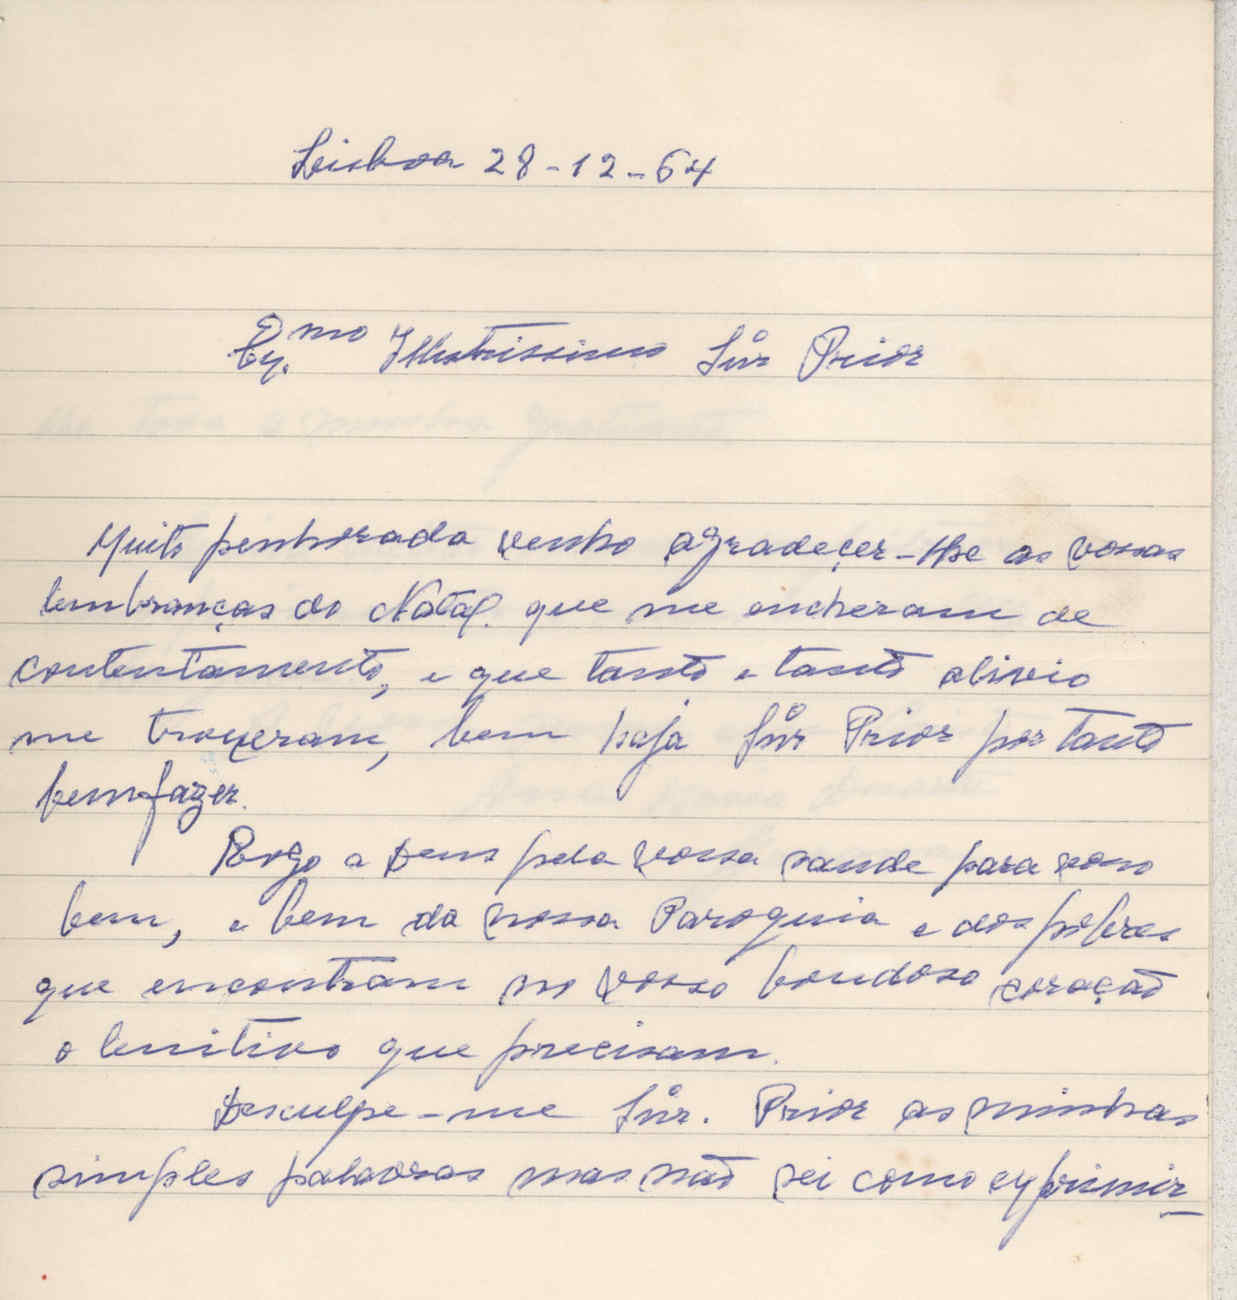 Lisboa 28-12-64
Ex.mo Illustrissimo Snr Prior
Muito penhorada venho agradeçer-lhe as vossas
lembranças do Natal. que me encheram de
contentamento, e que tanto e tanto alivio
me troxeram, bem haja Snr Prior por tanto
bem fazer.
Rogo a Deus pela vossa saude para vosso
bem, e bem da nossa Paroquia e dos pobres
que encontram no vosso bondoso coração
o lenitivo que precisam.
Desculpe-me Snr. Prior as minhas
simples palavras mas não sei como exprimir